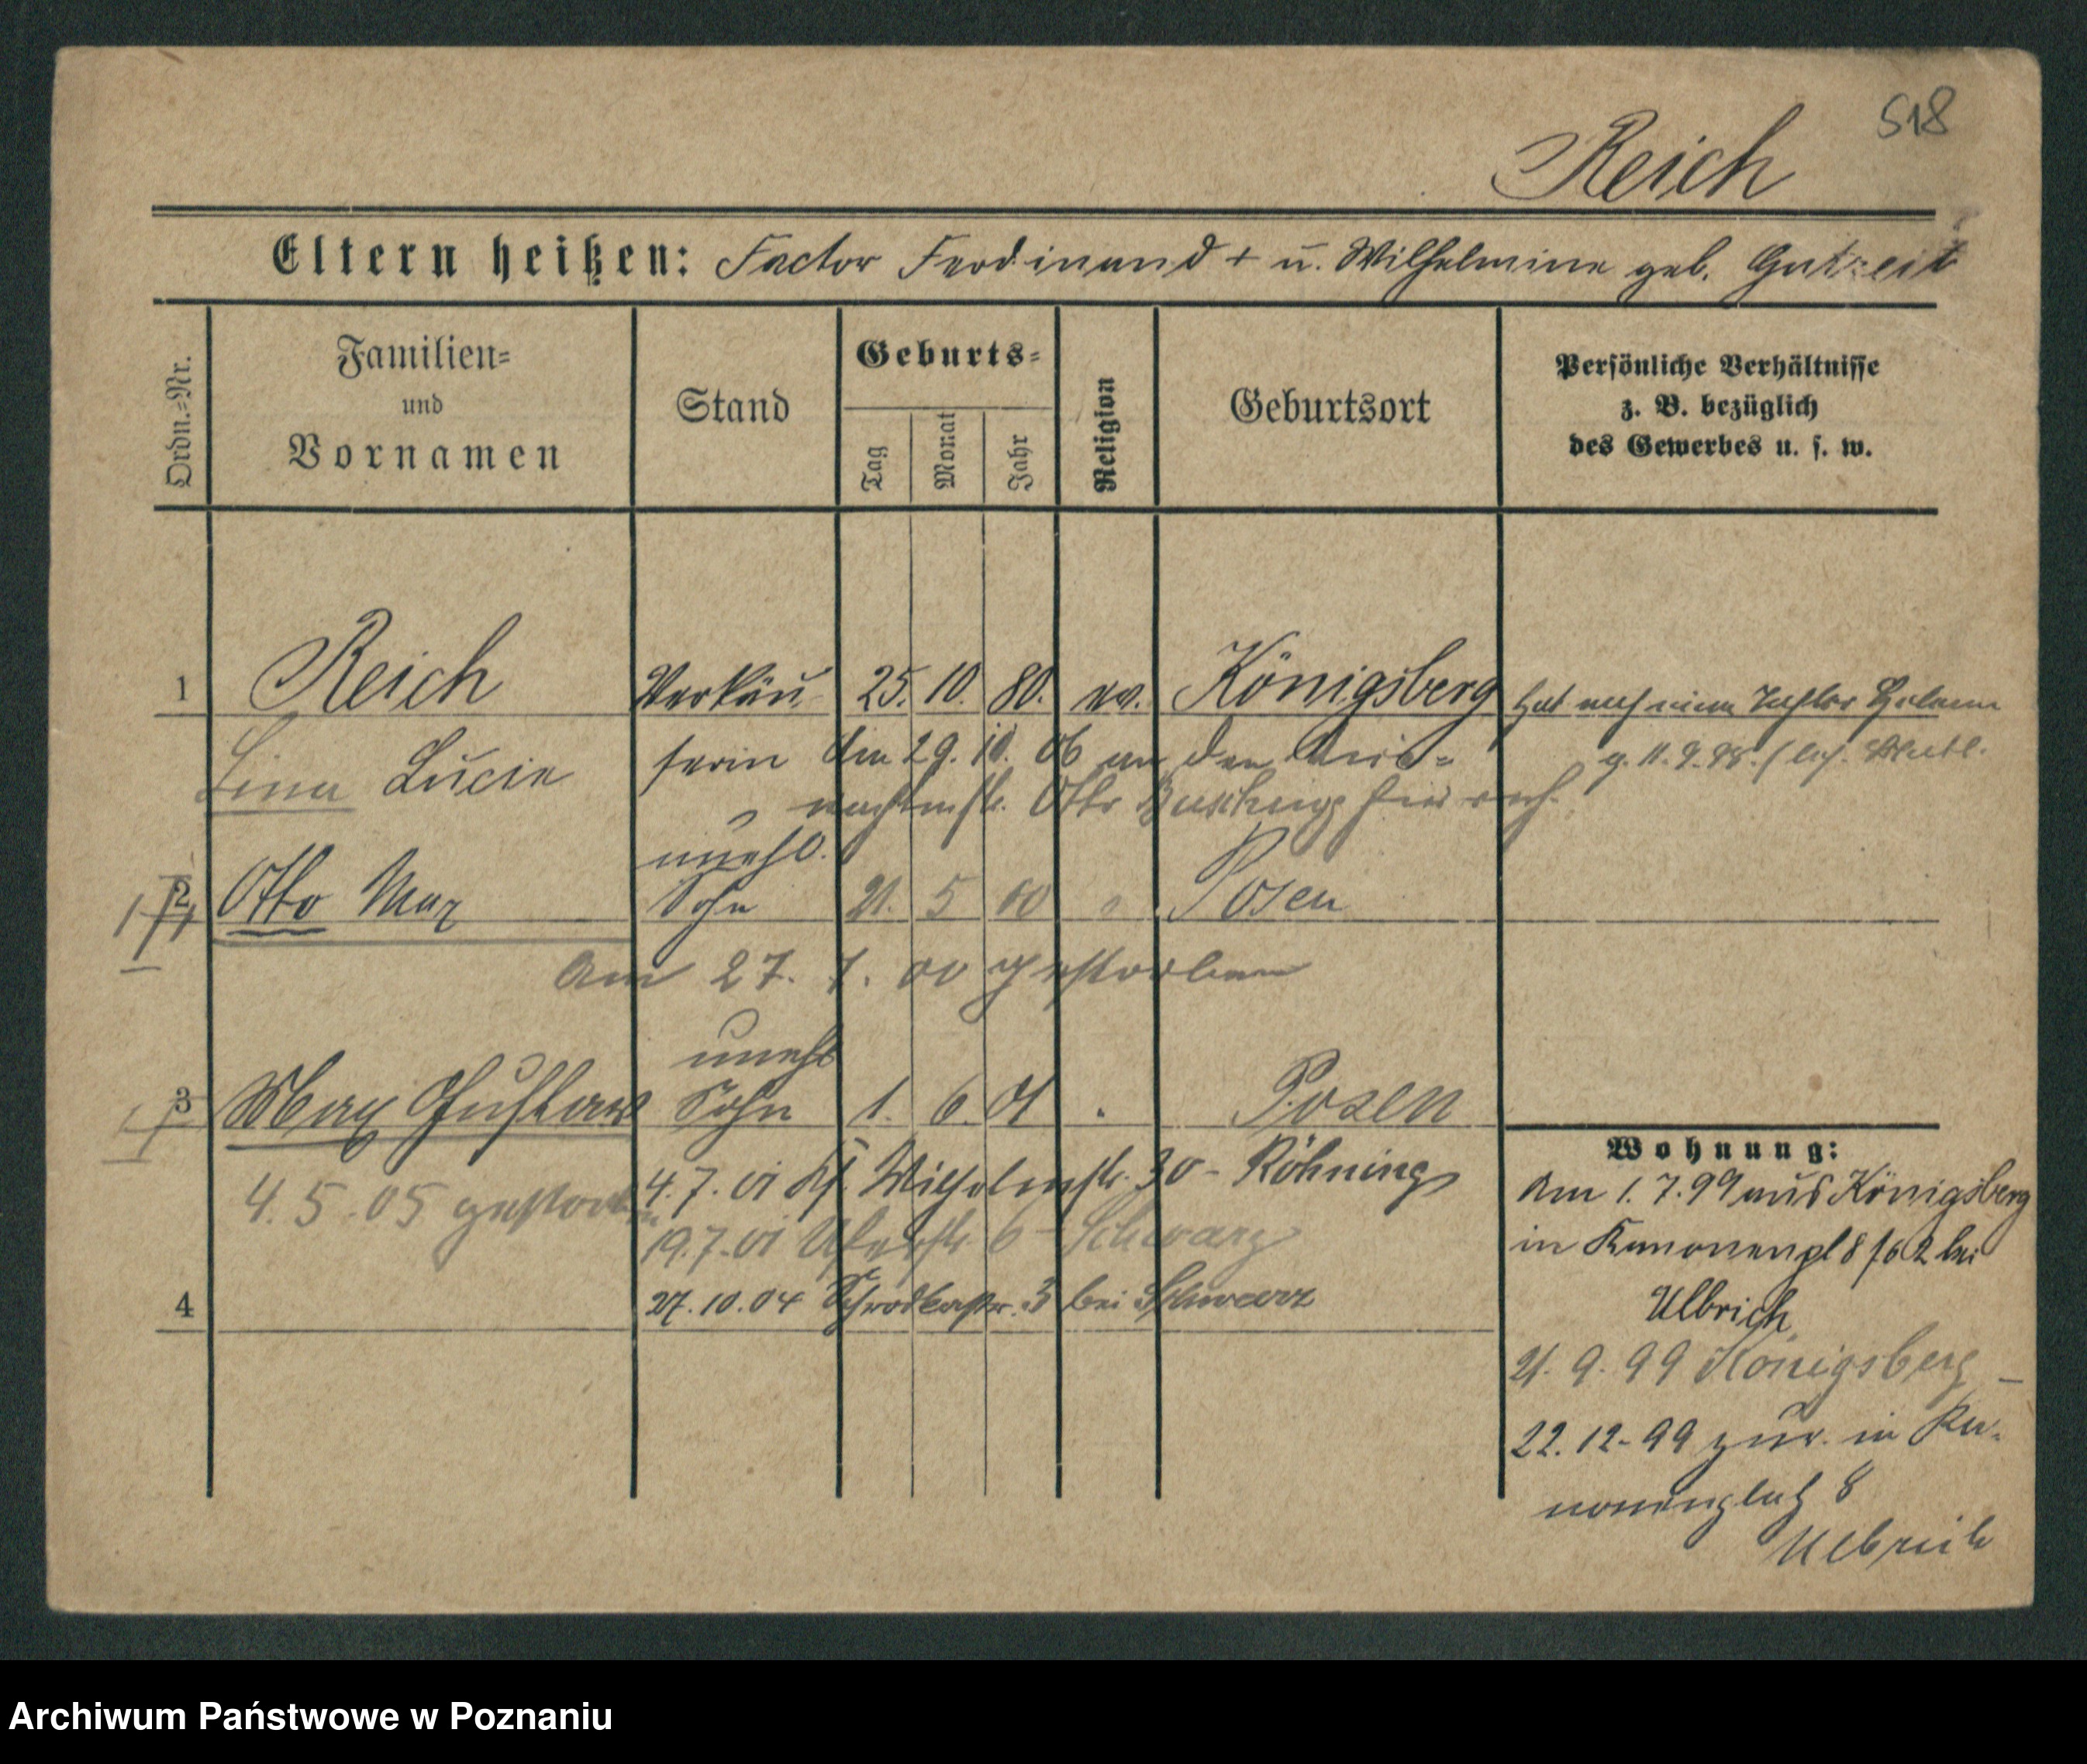 518
Reich
Eltern heißen: Factor Ferdinand + u. Wilhelmine geb. Gutzeit
Ordn.=Nr.
Familien=
und
Vornamen
Stand
Geburts=
Tag
Monat
Jahr
Religion
Geburtsort
Persönliche Verhältnisse
z. B. bezüglich
des Gewerbes u. s. w.
1 Reich Verkäu- 25. 10. 80. ev. Königsberg hat noch eine Tochter Helene
Lina Lucie ferin am 29. 10. 06 an den g. 11. 9. 98.
Otto
unehl.
2 Otto Max Sohn 21. 5 00 " Posen
am 27. 7. 00 gestorben
unehl
3 Max Gustav Sohn 1. 6. 01 " Posen
Wohnung:
4. 5. 05 gestorben
4. 7. 01 Wilhelmstr. 30 - Röhning
19. 7. 01 6 - Schwarz
27. 10. 04 Schrodkastr. 3 bei Schwarz
4
Am 1. 7. 99 aus Königsberg
in Kanonenpl 8 bei
Ulbrich
21. 9. 99 Königsberg -
22. 12. 99 zur. in Ka-
nonenplatz 8
Ulbrich
Archiwum Państwowe w Poznaniu